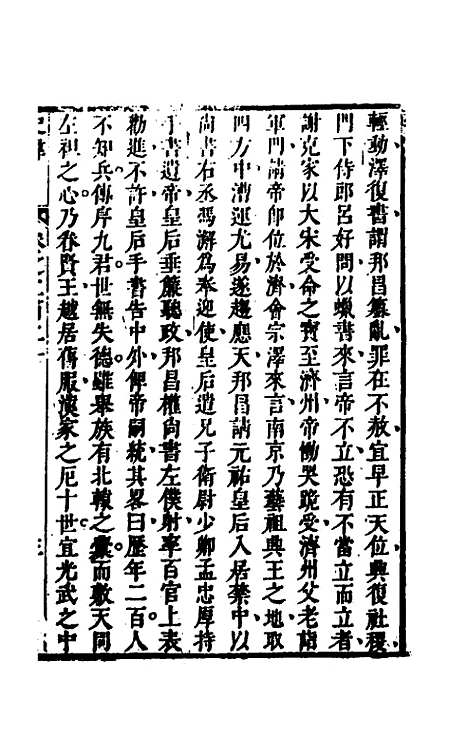 輕動澤復書謂邦昌簒亂罪在不赦宜早正天位興復社稷
門下侍郎呂好問以蠟書來言帝不立恐有不當立而立者
謝克家以大宋受命之寶至濟州帝慟哭跪受濟州父老詣
軍門請帝卽位於濟會宗澤來言南京乃藝祖興王之地取
四方中漕運尤易遂趨應天邦昌請元祐皇后入居禁中以
尚書右丞馮澥為奉迎使皇后遣兄子衛尉少卿孟忠厚持
手書遺帝皇后垂簾聽政邦昌權尚書左僕射率百官上表
勸進不許皇后手書告中外俾帝嗣統其畧曰歷年二百人
不知兵傳序九君世無失德雖舉族有北轅之釁而敷天同
左袒之心乃眷賢王越居舊服漢家之厄十世宜光武之中